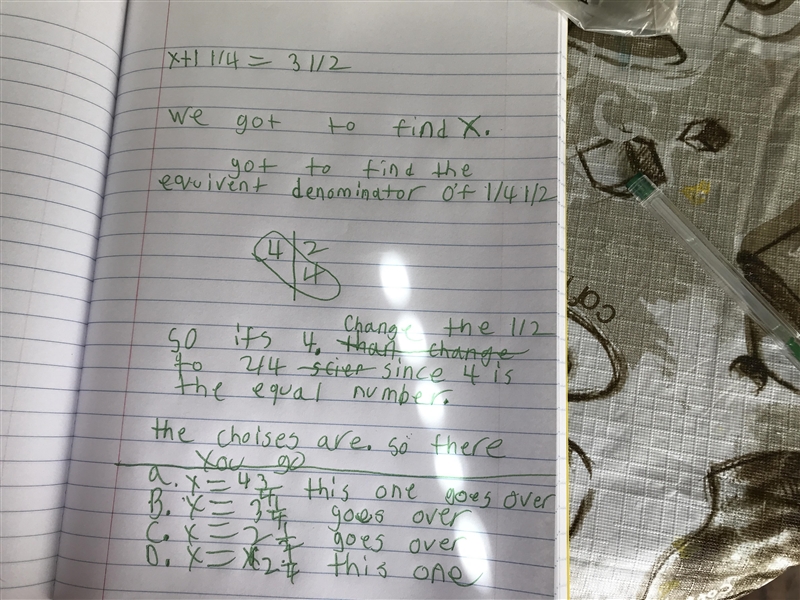 x+1 1/4 = 3 1/2
We got to find X.
got to find the
equivent denominator of 1/4 1/2
4 2
4
Change the 1/2
so its 4. than change
to 2/4 since 4 is
the equal number.
the choises are. so there
you go
a. x = 4 3/4 this one goes over
B. x = 3 goes over
C. x = 2 goes over
D. x = 2 1/4 this one